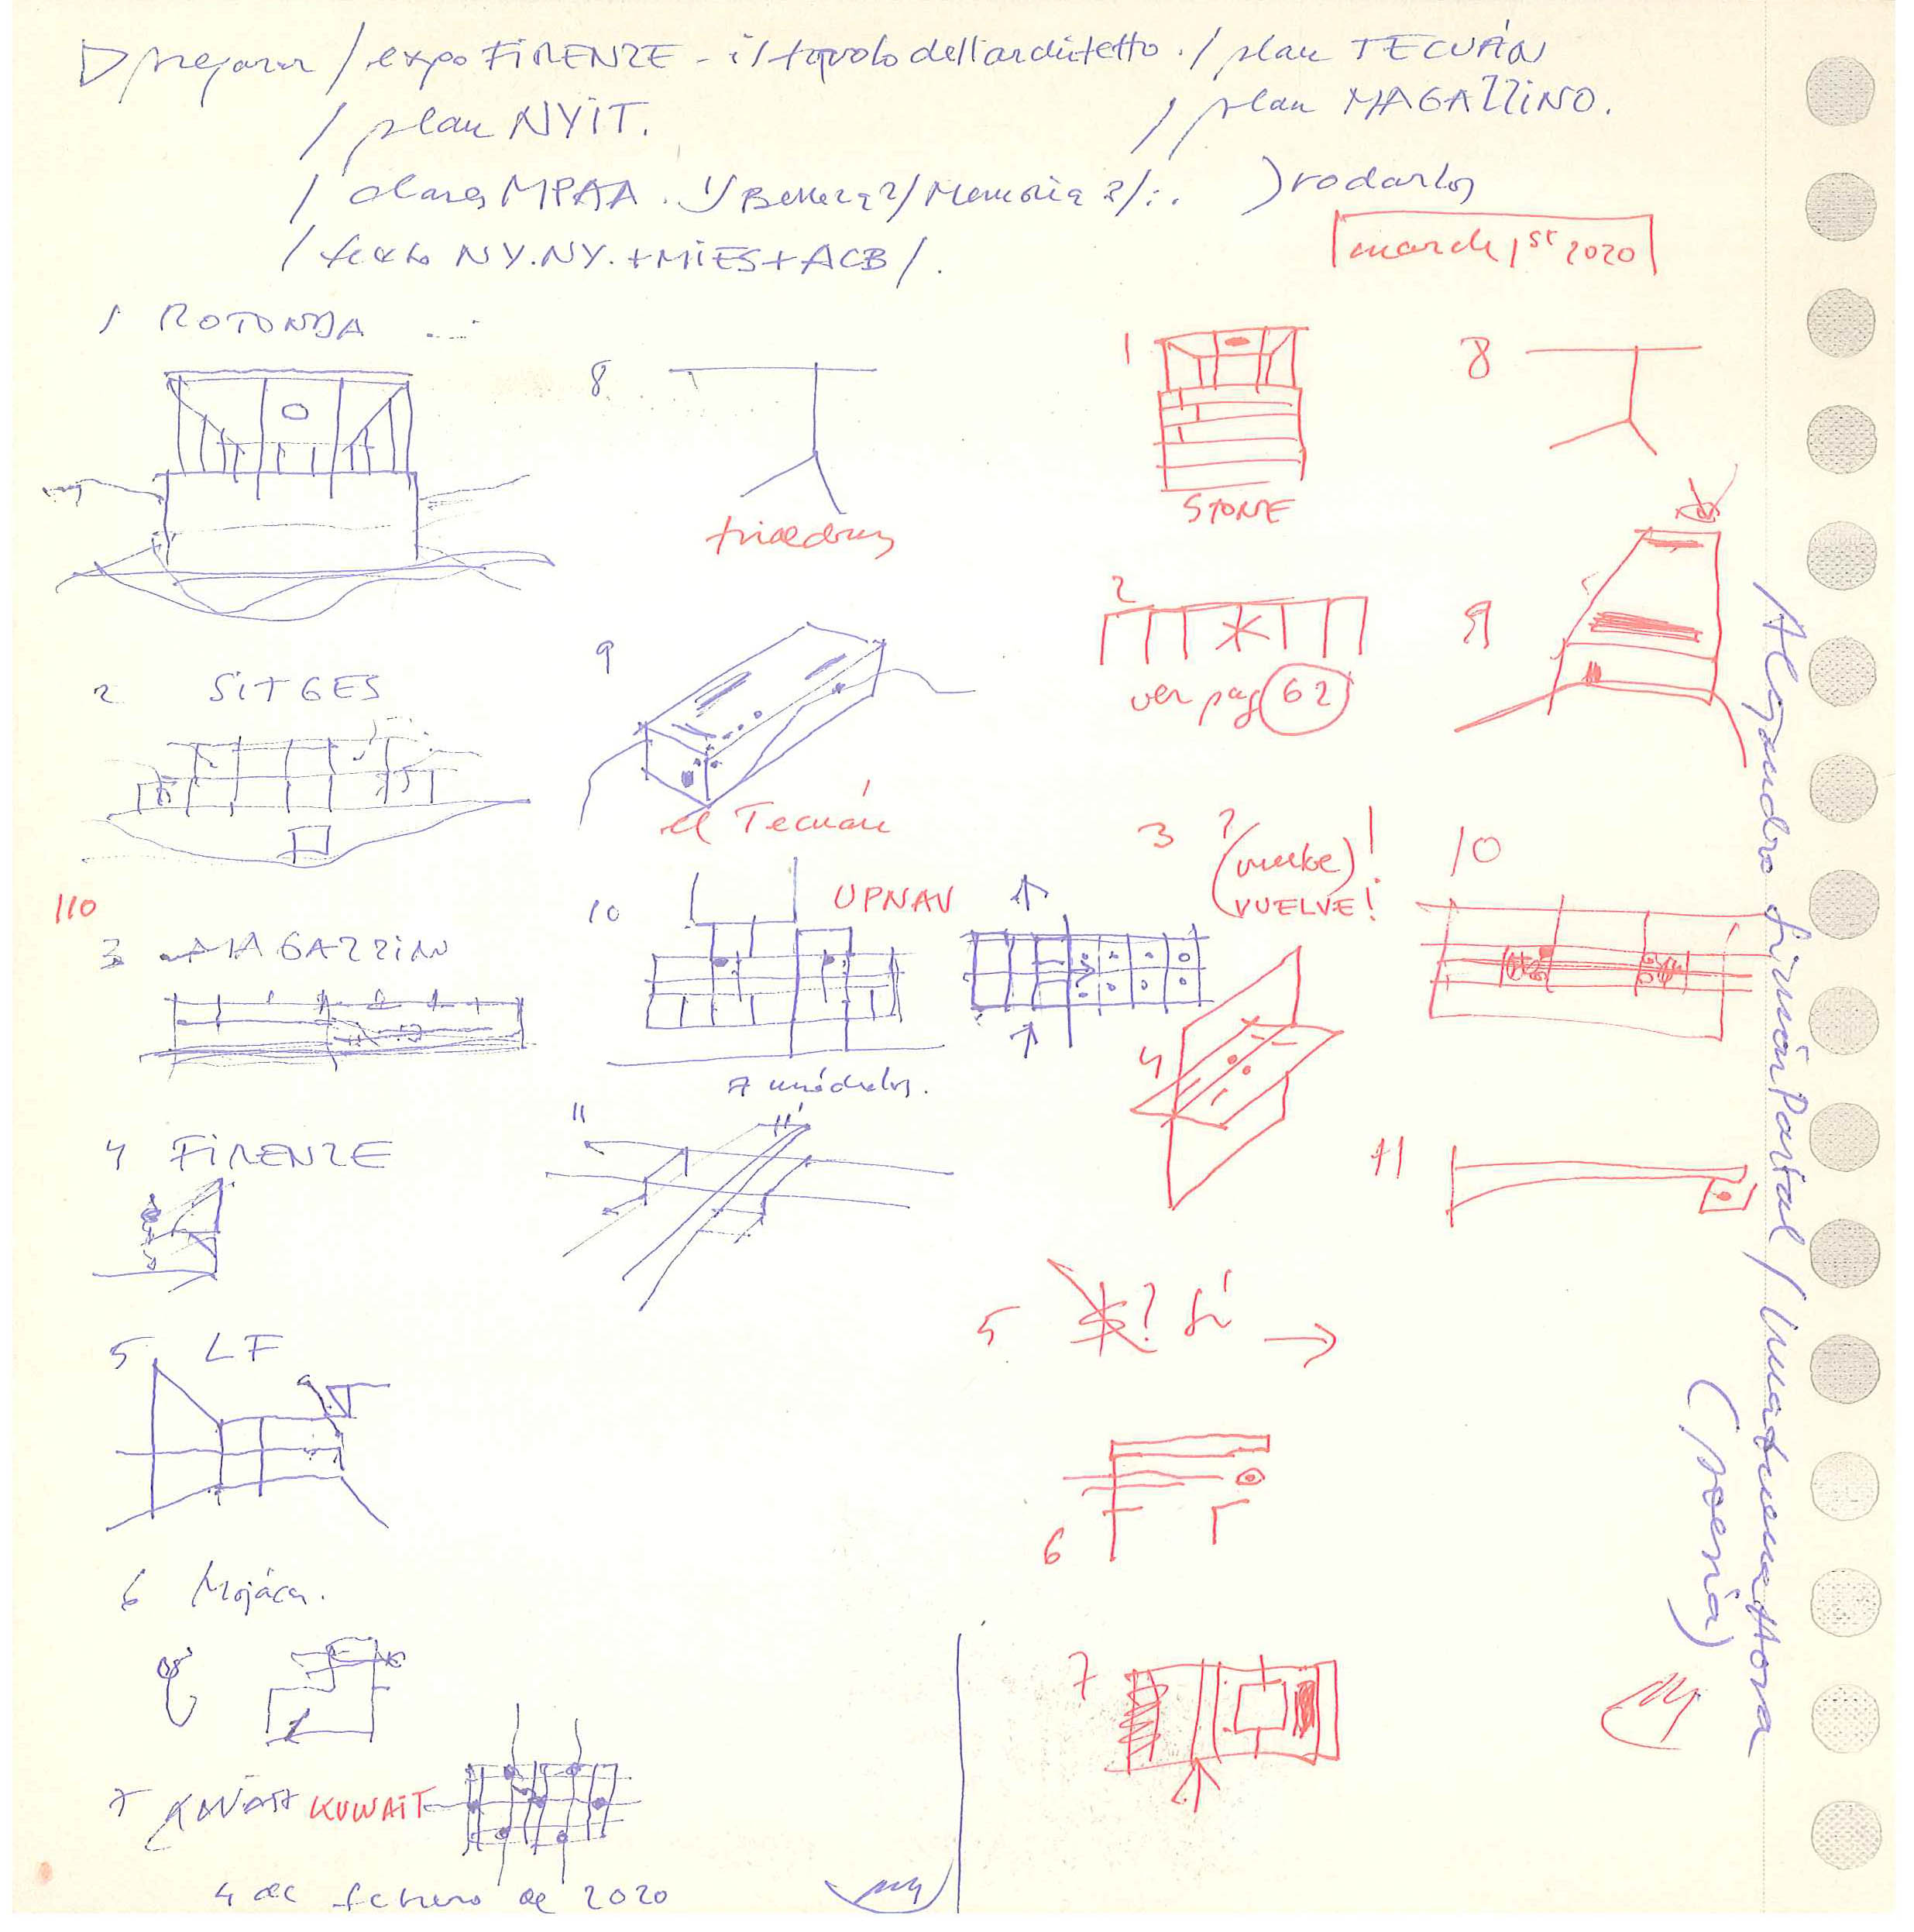 preparar / expo FIRENZE - il tavolo dell'architetto. / plan TECUÁN
/ plan NYiT. / plan MAGAZZiNO.
/ clases MPAA. 1/ Belleza 2/ Memoria 3/:. ) rodarlos
/ texto NY.NY. + MiES + ACB /.
march 1st 2020
1 ROTONDA
8
1
8
triedros
STONE
2 SiTGES
9
2
9
ver pag 62
el Tecuán
110
3 MAGAZZiNO
10
UPNAV
3 ? (vuelve) !
VUELVE!
10
7 módulos.
4 FiRENZE
11
4
11
5 LF
5 ? Sí →
6 Mojácar.
6
7 KUWAiT
7
4 de febrero de 2020
Alejandro Simón Partal / Una buena Hora
(poesía)